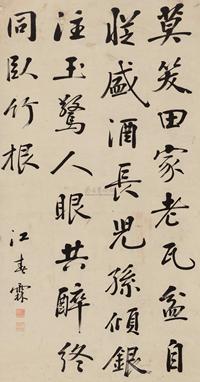 莫笑田家老瓦盆自
從盛酒長兒孫傾銀
注玉驚人眼共醉終
同臥竹根
江春霖